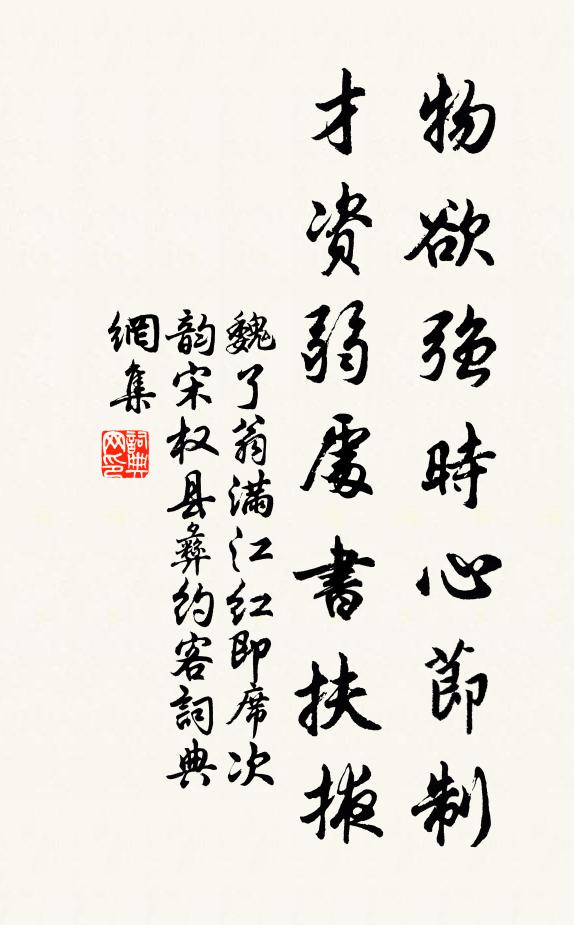 物欲強時心節制
才资弱處書扶掖
魏了翁滿江红即席次
韵宋权县彝约客詞典
網集
詞典网印